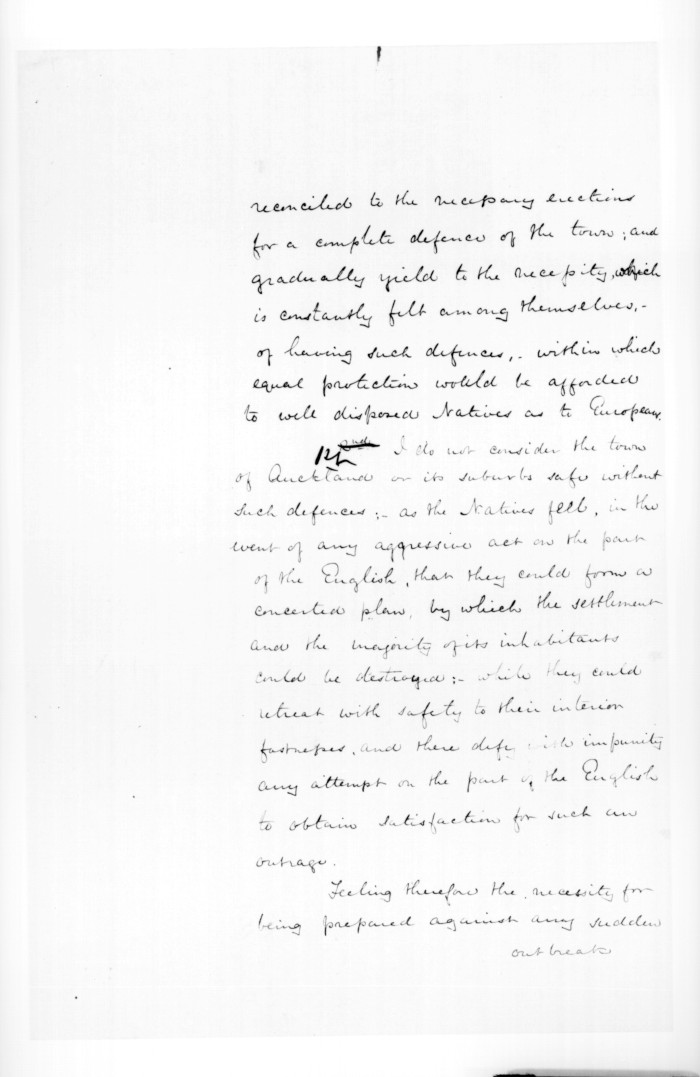 reconciled to the necessary erections
for a complete defence of the town; and
gradually yield to the necessity, which
is constantly felt among themselves,-
of having such defences,- within which
equal protection would be afforded
to well disposed Natives as to Europeans.
I do not consider the town
of Auckland or its suburbs safe without
such defences:- as the Natives feel, in the
event of any aggressive act on the part
of the English, that they could form a
concerted plan, by which the settlement
and the majority of its inhabitants
could be destroyed:- while they could
retreat with safety to their interior
fastnesses, and there defy with impunity
any attempt on the part of the English
to obtain satisfaction for such an
outrage.
Feeling therefore the necessity for
being prepared against any sudden
outbreak